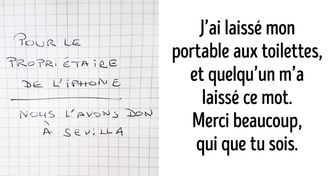 POUR LE
PROPRIÉTAIRE
DE L'IPHONE
NOUS L'AVONS DON
À SEVILLA
J'ai laissé mon
portable aux toilettes,
et quelqu'un m'a
laissé ce mot.
Merci beaucoup,
qui que tu sois.